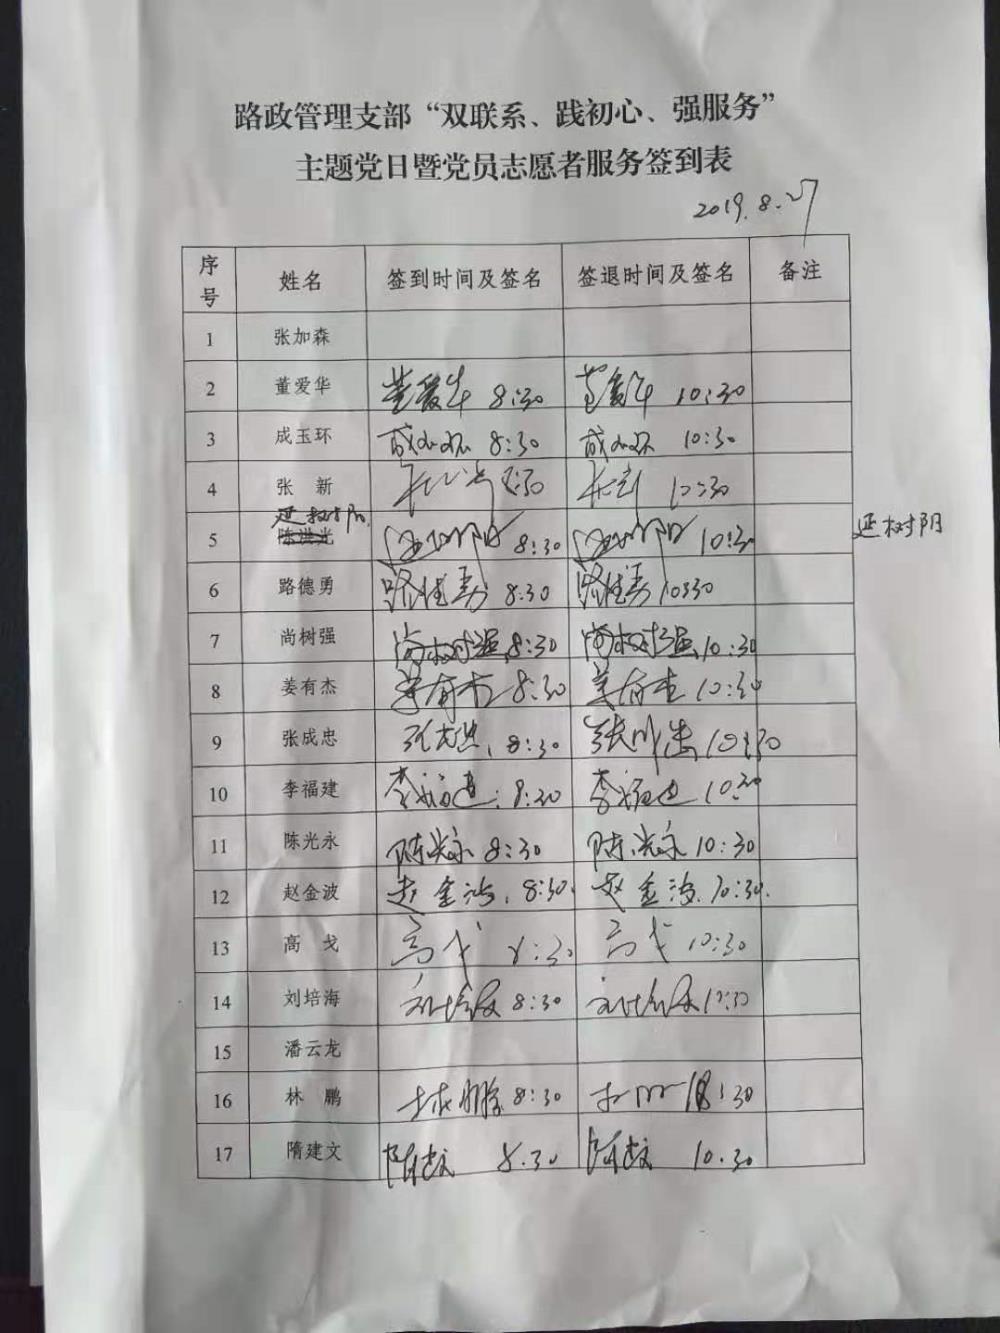 路政管理支部“双联系、践初心、强服务”
主题党日暨党员志愿者服务签到表
2019.8.27
序号 姓名 签到时间及签名 签退时间及签名 备注
1 张加森
2 董爱华 董爱华 8:30 董爱华 10:30
3 成玉环 成玉环 8:30 成玉环 10:30
4 张 新 张新 8:30 张新 10:30
延树阴
5 陈洪光 延树阴 8:30 延树阴 10:30 延树阴
6 路德勇 路德勇 8:30 路德勇 10:30
7 尚树强 尚树强 8:30 尚树强 10:30
8 姜有杰 姜有杰 8:30 姜有杰 10:30
9 张成忠 张成忠 8:30 张成忠 10:30
10 李福建 李福建 8:30 李福建 10:30
11 陈光永 陈光永 8:30 陈光永 10:30
12 赵金波 赵金波 8:30 赵金波 10:30
13 高 戈 高戈 8:30 高戈 10:30
14 刘培海 刘培海 8:30 刘培海 10:30
15 潘云龙
16 林 鹏 林鹏 8:30 林鹏 10:30
17 隋建文 隋建文 8.30 隋建文 10.30